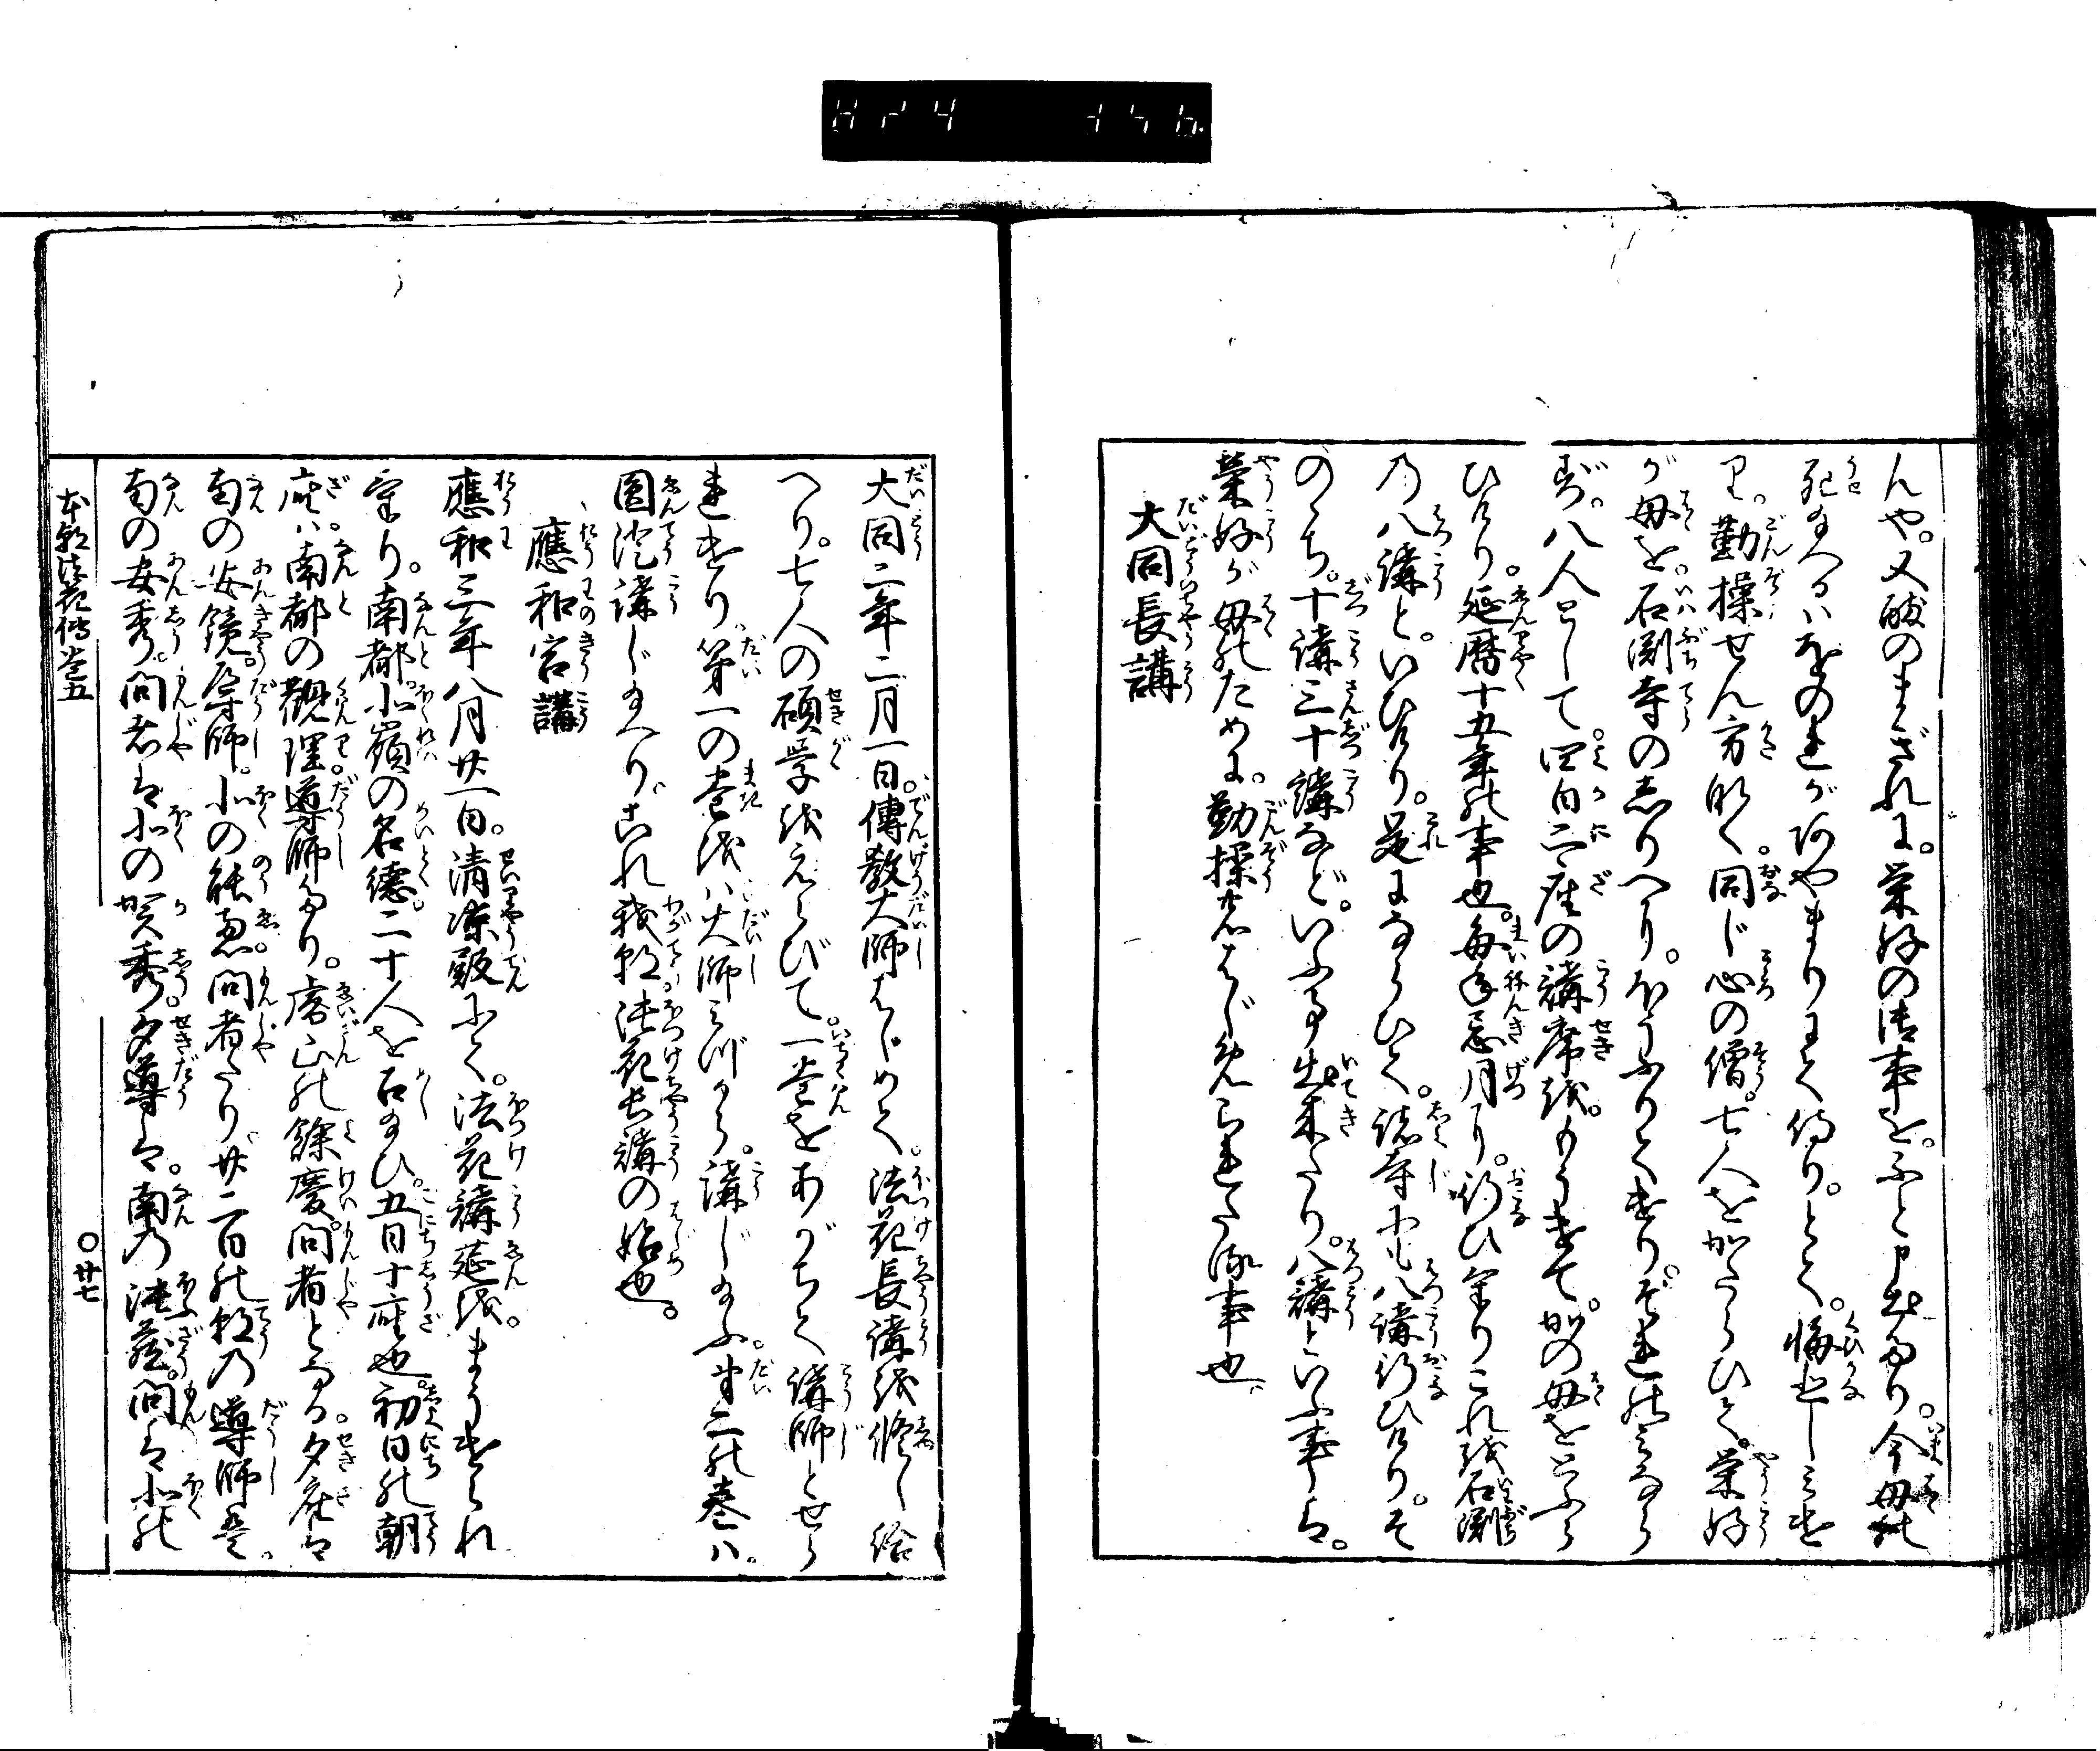 んや。又酸のまぎれに。栄好の法事を。ふと申出たり。今母の
死給へるハをのれがあやまりにて侍り。とて。悔かなしミけ
り。勤操せん方なく。同じ心の僧。七人をかたらひて。栄好
が母を。石渕寺の辺りへ。はうふりてけり。それのミなら
ず。八人として。四日二座の講席を。まうけて。かの母をとふら
ひけり。延暦十五年の事也。毎年忌月に。行ひ来りこれを石渕
の八講と。いひけり。是にならひて。諸寺にも八講行ひけり。そ
のゝち。十講三十講など。いふ事出来たり。八講といふ事ハ。
栄好が母のために。勤操のはじめられたる事也。
大同長講
大同二年二月一日。傳教大師はじめて。法花長講を修し給
へり。七人の碩学をえらびて。一巻をあがちて講師とせら
れけり。第一の巻をハ大師ミづから。講じ給ふ。第二の巻ハ。
圓澄講じ給へり。これ我朝。法花長講の始也。
應和宮講
應和三年八月廿一日。清凉殿にて。法花講莚を。まうけられ
たり。南都。北嶺の名徳。二十人を召給ひ。五日十座也。初日の朝
座ハ南都の觀理導師たり。叡山の餘慶。問者となる夕座ハ
南の安鏡。導師。北の能恵。問者たり廿二日の朝の導師ハ。
南の安秀。問者ハ北の賀秀。夕導ハ。南の法蔵。問ハ北の
本朝法花傳巻五
〇廿七